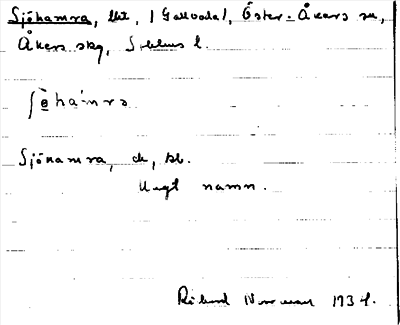 Sjöhamra, lht, (Gallboda), Öster-Åkers sn,
Åkers skg, Sthlms l.
ʃø̀hàmra
Sjöhamra, ds, bl.
Ungt namn.
Rikard 1934.